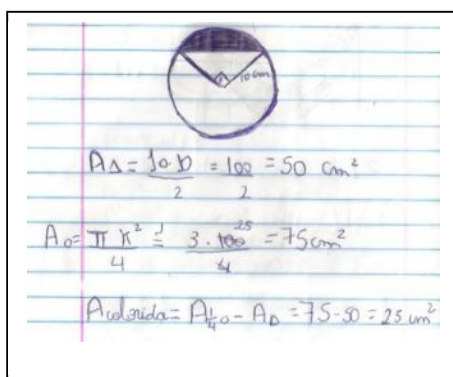 10cm
A∆ = 10.10 = 100 = 50 cm²
2 2
Ao = π r² = 3.100 25 = 75 cm²
4 4
Acolorida = A¼o - A∆ = 75 - 50 = 25 cm²